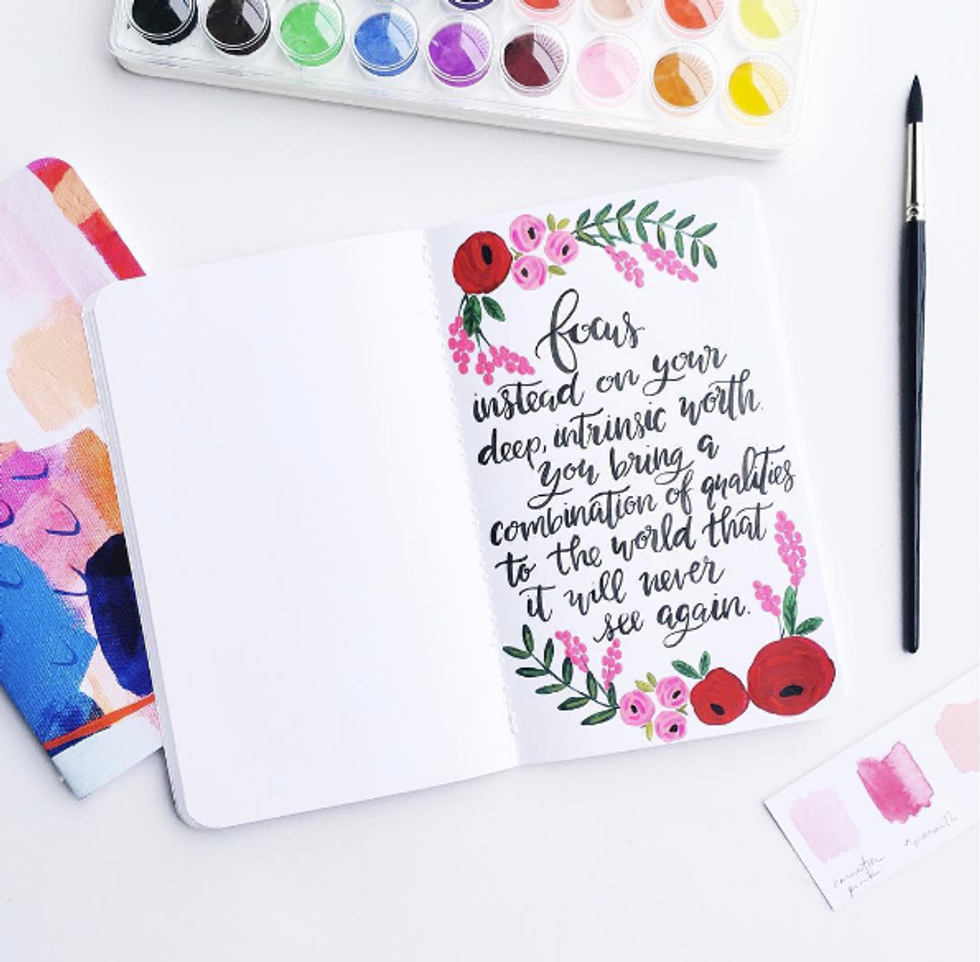 focus
instead on your
deep, intrinsic worth.
you bring a
combination of qualities
to the world that
it will never
see again.
carnation
pink